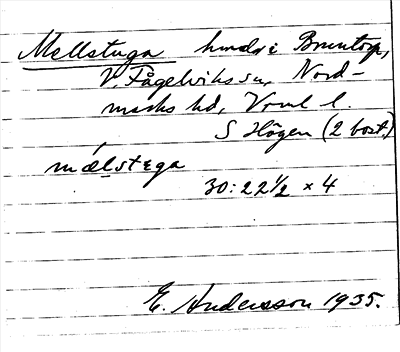 Mellstuga hmd i Bruntorp,
V. Fågelviks sn, Nord-
marks hd, Vrml l.
S Högen (2 bost.)
mælstega
30:22½ × 4
E. Andersson 1935.